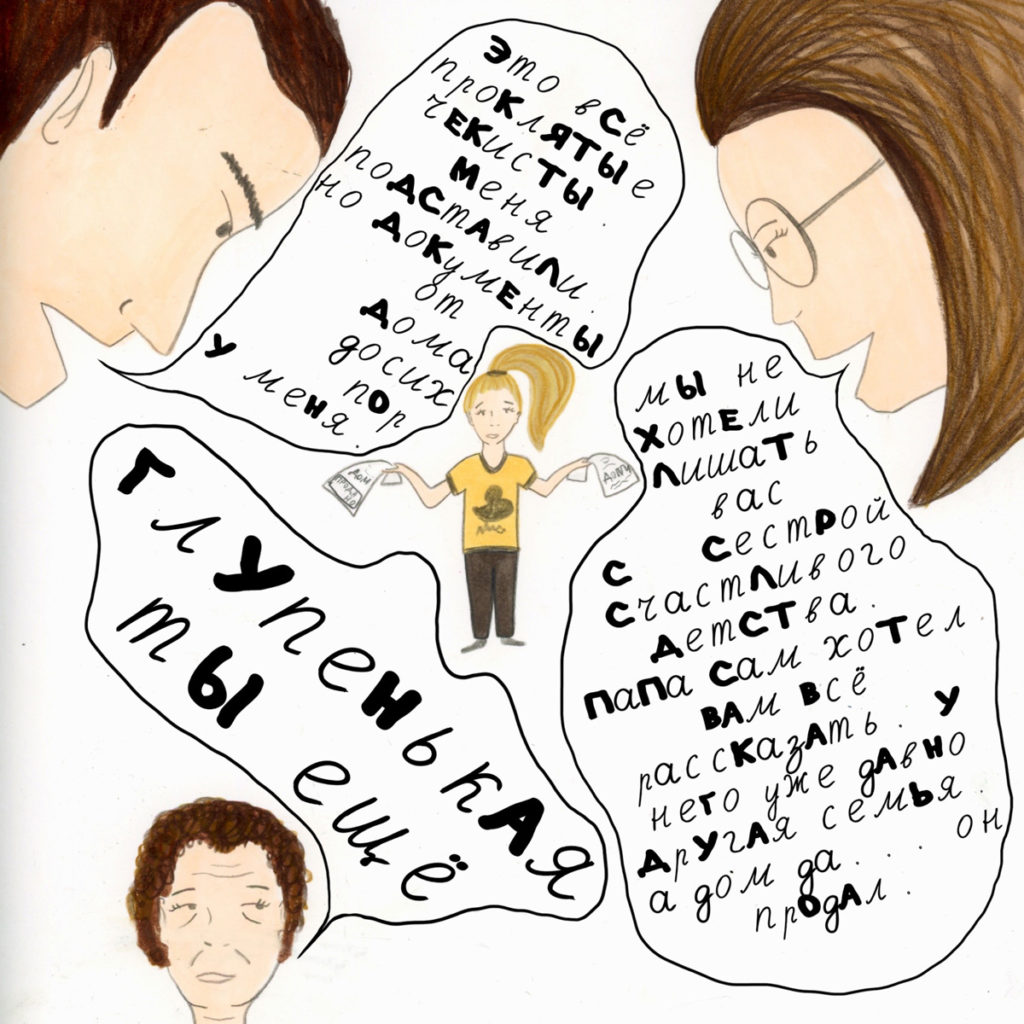 Это всё
проклятые
чекисты
меня
подставили.
но документы
от
дома
досих
пор
у меня.
дом
продан
не
дом
мы не
хотели
лишать
вас
с сестрой
счастливого
детства.
папа сам хотел
вам всё
рассказать. у
него уже давно
другая семья.
а дом да.... он
продал.
глупенькая
ты ещё